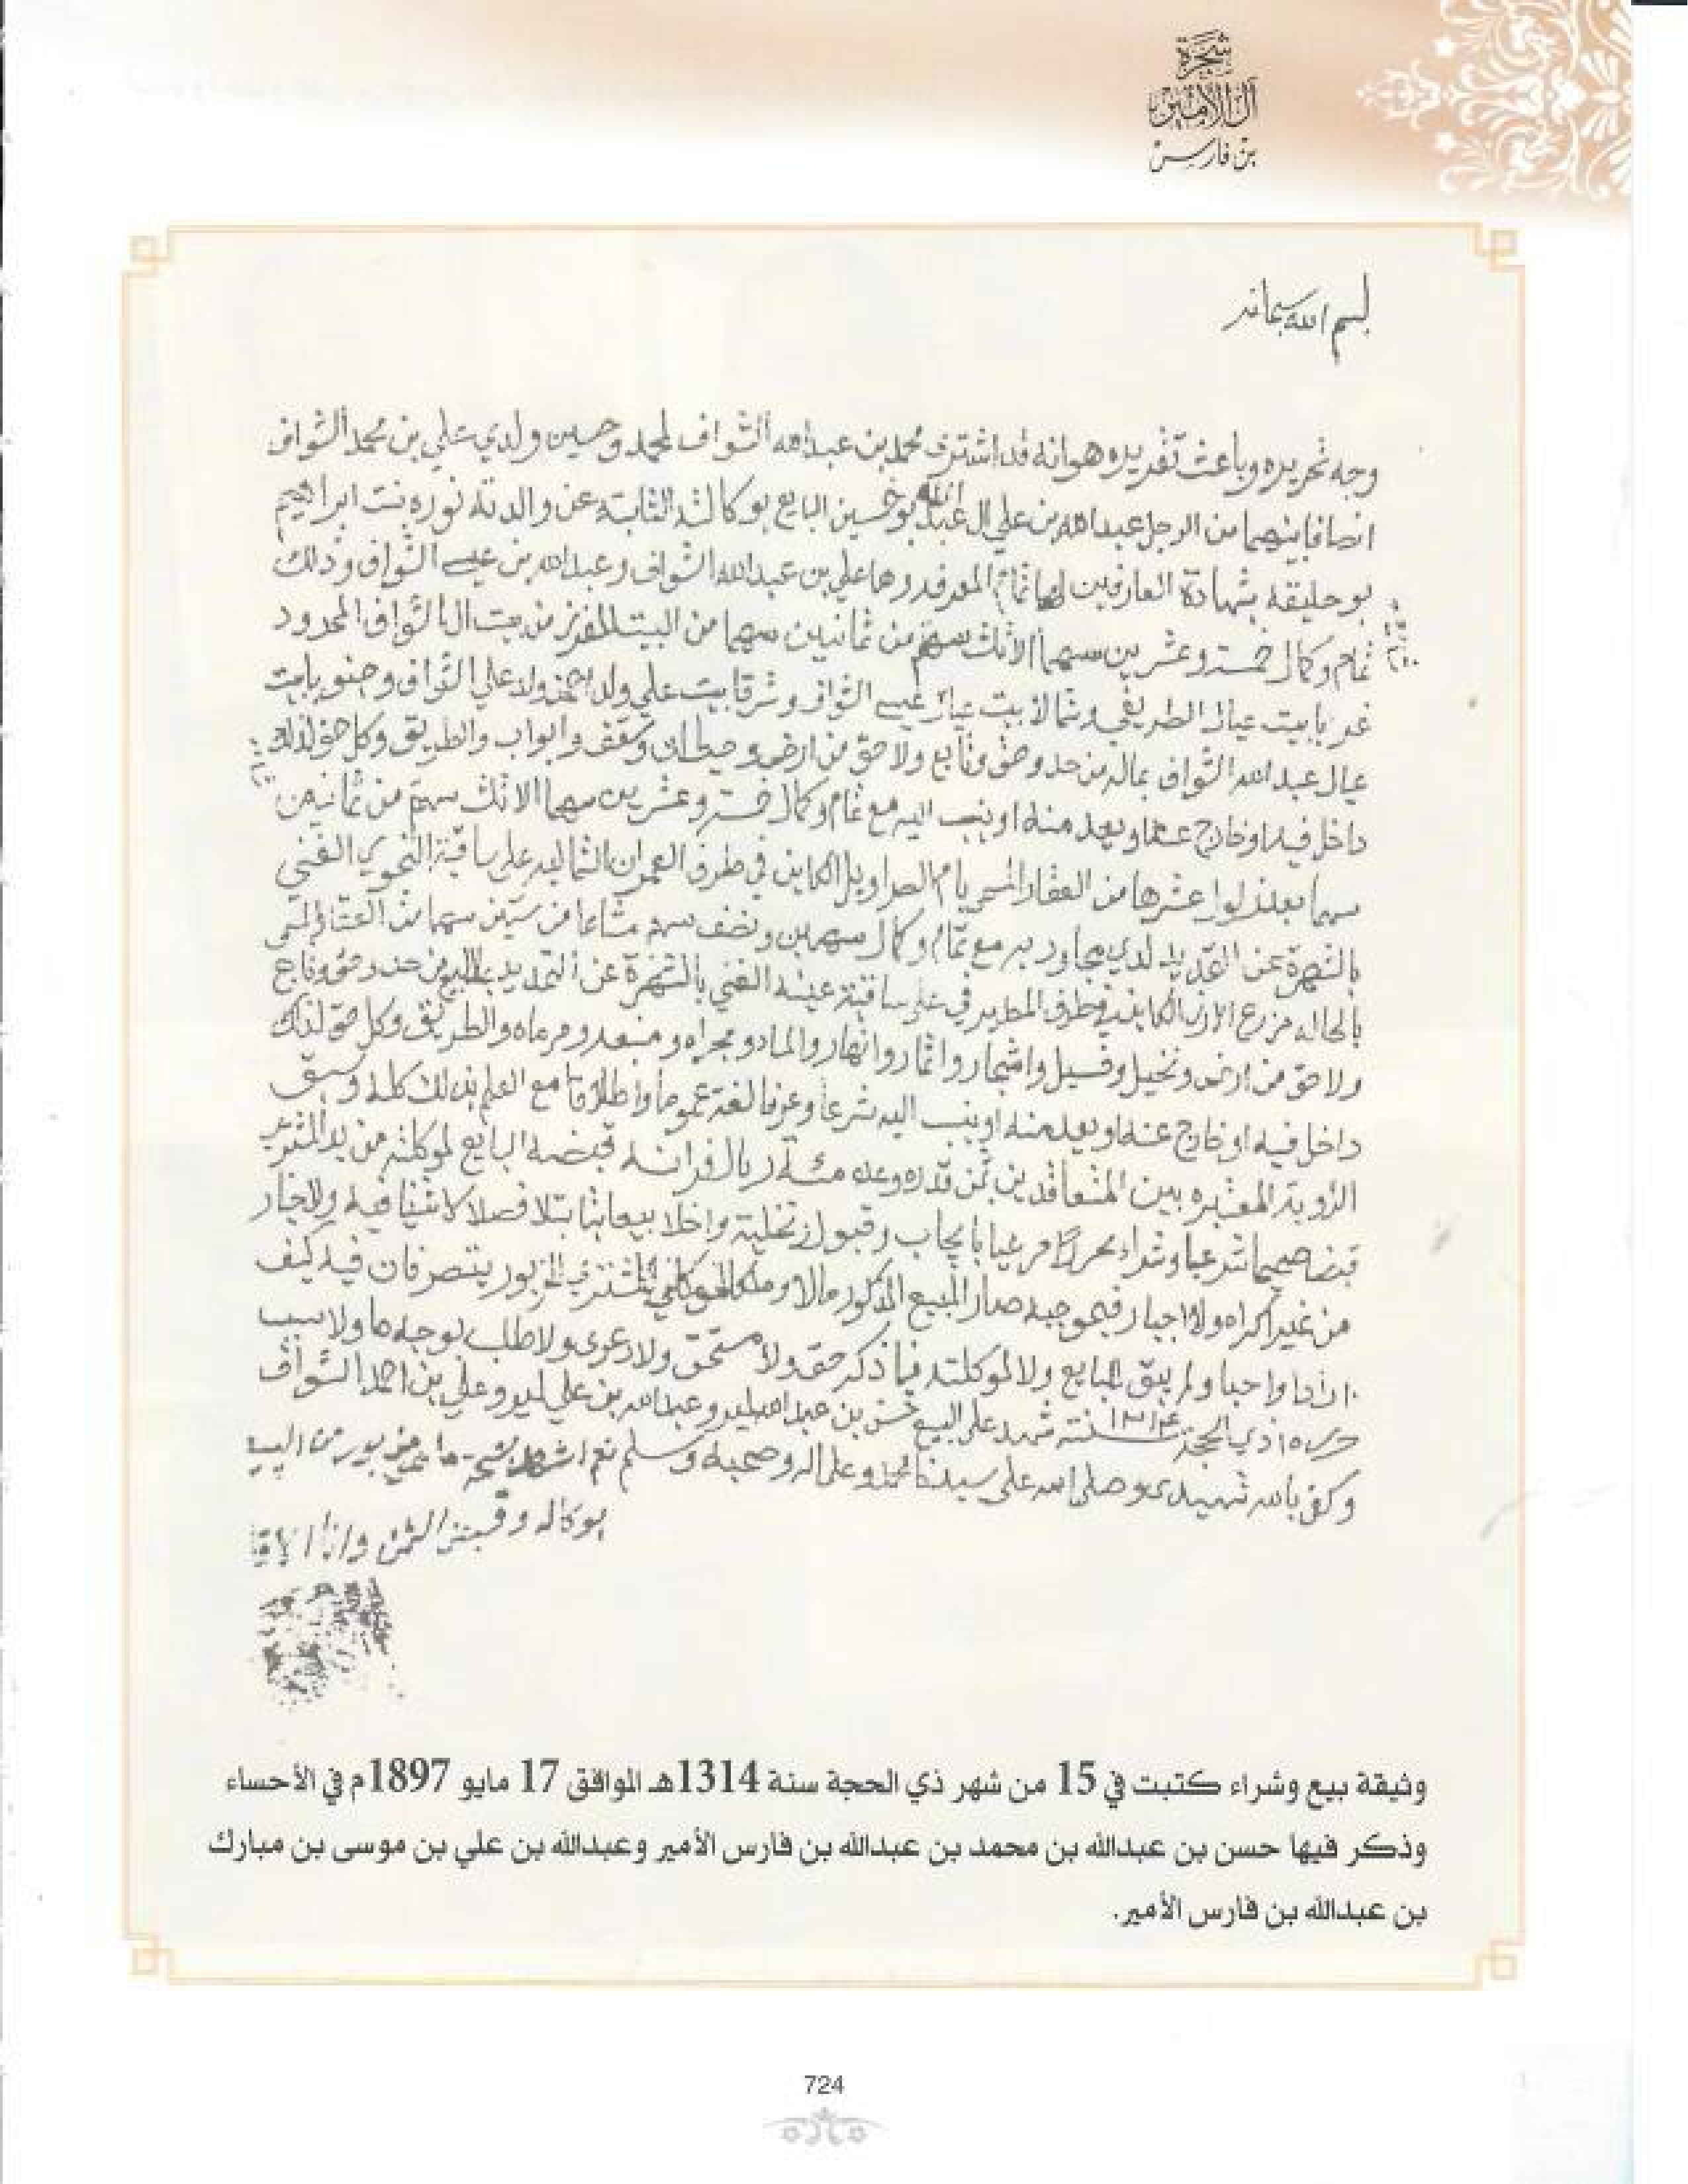 شجرة
آل الأمير
بن فارس
بسم الله سبحانه
وجه تحريره وباعث تقريره هو انه قد اشترى محمد بن عبدالله الشواف لمحمد وحسين ولدي علي بن محمد الشواف
انصافا بينهما من الرجل عبدالله بن علي ال عبدالله بوخمسين البايع بوكالته الثابتة عن والدته نوره بنت ابراهيم
بو حليقه بشهادة العارفين لها تمام المعرفه وهما علي بن عبدالله الشواف وعبدالله بن عيسى الشواف وذلك
تمام وكمال خمسة وعشرين سهما الا ثلث سهم من ثمانين سهما من البيت المفرز من بيت ال الشواف المحدود
غربا بيت عيال الطريفي وشمالا بيت عيال عيسى الشواف وشرقا بيت علي ولد احمد ولد علي الشواف وجنوبا بيت
عيال عبدالله الشواف بماله من حد وحق وتابع ولاحق من ارض وحيطان وسقف وابواب والطريق وكل حق لذلك
داخل فيه او خارج عنه او يعد منه او ينسب اليه مع تمام وكمال خمسة وعشرين سهما الا ثلث سهم من ثمانين
سهما بعد عشرها من العقار المسمى بام الصراويل الكاين في طرف العمران الشماليه على ساقية النحوي الغني
بالشهرة عن التحديد لدي مجاوريه مع تمام وكمال سهمين ونصف سهم مشاعا من ستين سهما من العقار المسمى
بالحاله مزرع الارز الكاين في طرف المطيرفي على ساقية عينه الغني بالشهرة عن التحديد من حد وحق وتابع
ولاحق من ارض ونخيل وفسيل واشجار واثمار وانهار والماء ومجراه ومنبعه ومرماه والطريق وكل حق لذلك
داخل فيه او خارج عنه او يعد منه او ينسب اليه شرعا وعرفا لغة عموما واطلاقا مع العلم بذلك كله وسبق
الرؤية المعتبره بين المتعاقدين بثمن قدره وعدده مئة ريال فرانسه قبضه البايع لموكلته من يد المشتري
قبضا صحيحا شرعيا وشراء محررا مرعيا بايجاب وقبول وتخلية واخلا بيعا بتا بتلا فصلا لا ثنيا فيه ولا خيار
من غير اكراه ولا اجبار فبموجبه صار المبيع المذكور مالا وملكا لموكلي المشتري المزبور يتصرفان فيه كيف
ارادا واحبا ولم يبق للبايع ولا لموكلته فيما ذكر حق ولا مستحق ولا دعوى ولا طلب بوجه ما ولا سبب
حرر ١٥ ذي الحجة سنة ١٣١٤ شهد على البيع حسن بن عبدالله الامير وعبدالله بن علي الامير وعلي بن احمد الشواف
وكفى بالله شهيدا وصلى الله على سيدنا محمد وعلى اله وصحبه وسلم نعم من البيع
بوكاله وقبض الثمن وانا
وثيقة بيع وشراء كتبت في 15 من شهر ذي الحجة سنة 1314هـ الموافق 17 مايو 1897م في الأحساء
وذكر فيها حسن بن عبدالله بن محمد بن عبدالله بن فارس الأمير وعبدالله بن علي بن موسى بن مبارك
بن عبدالله بن فارس الأمير.
724